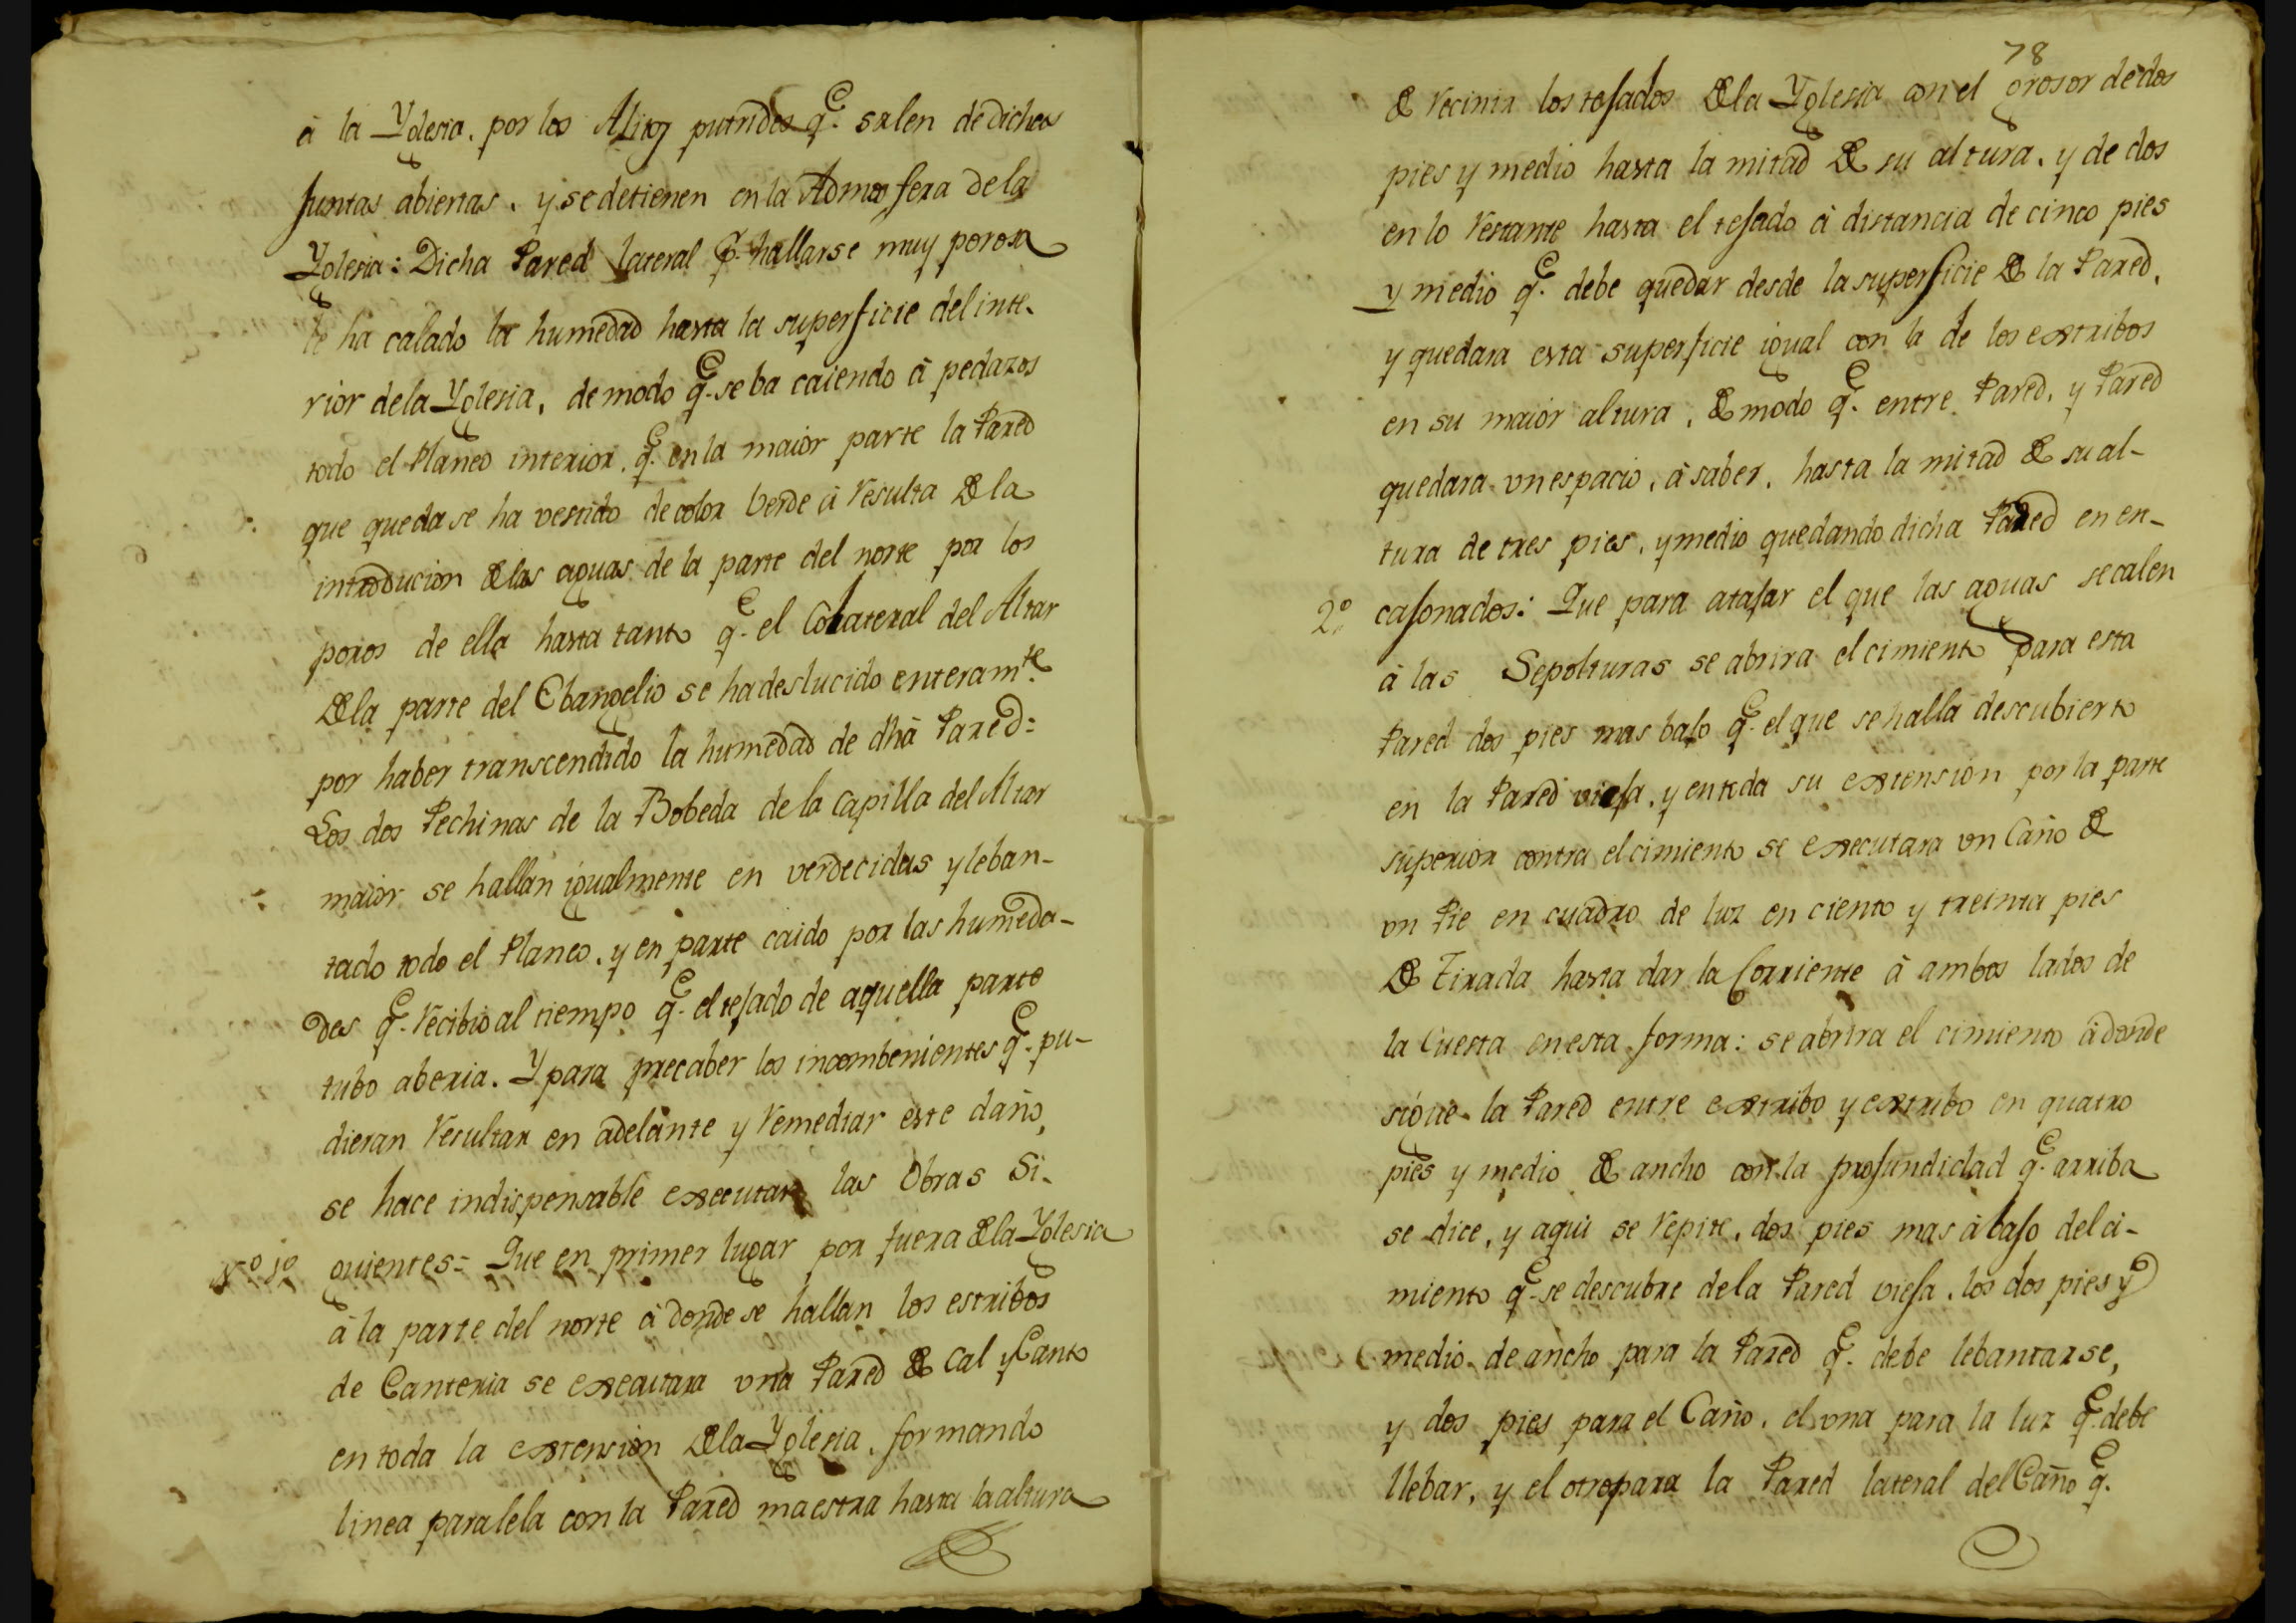 à la Yglesia, por los Alitos putridos q.e salen de dichas
Juntas abiertas, y se detienen en la Admosfera de la
Yglesia: Dicha Pared lateral p.r hallarse muy porosa
le ha calado la humedad hasta la superficie del inte-
rior de la Yglesia, de modo q.e se ba caiendo à pedazos
todo el Planco interior, q.e en la maior parte la Pared
que queda se ha vestido de color Verde à resulta de la
introducion de las aguas de la parte del norte por los
poros de ella hasta tanto q.e el Colateral del Altar
de la parte del Ebangelio se ha deslucido enteram.te
por haber transcendido la humedad de dhâ Pared:
Los dos Pechinas de la Bobeda de la Capilla del Altar
maior se hallan igualmente en verdecidas y leban-
tado todo el Planco, y en parte caido por las humeda-
des q.e recibio al tiempo q.e el tejado de aquella parte
tubo aberia. Y para precaber los incombenientes q.e pu-
dieran resultar en adelante y remediar este daño,
se hace indispensable executar las Obras Si-
N.o 1.o guientes= Que en primer lugar por fuera de la Yglesia
à la parte del norte à donde se hallan los estribos
de Canteria se executara una Pared de Cal y Canto
en toda la extension de la Yglesia, formando
linea paralela con la Pared maestra hasta la altura
78
de recivir los tejados de la Yglesia con el grosor de dos
pies y medio hasta la mitad de su altura, y de dos
en lo restante hasta el tejado à distancia de cinco pies
y medio q.e debe quedar desde la superficie de la Pared,
y quedara esta superficie igual con la de los extribos
en su maior altura, de modo q.e entre Pared, y Pared
quedara un espacio, à saber, hasta la mitad de su al-
tura de tres pies, y medio quedando dicha Pared en en-
2.o cajonados: Que para atajar el que las aguas se calen
à las Sepolturas se abrira el cimiento para esta
Pared dos pies mas bajo q.e el que se halla descubierto
en la Pared vieja, y en toda su extension por la parte
superior contra el cimiento se executara un Caño de
un Pie en cuadro de luz en ciento y treinta pies
de Tirada hasta dar la Corriente à ambos lados de
la Cuesta en esta forma: se abrira el cimiento à donde
sigue la Pared entre extribo y extribo en quatro
pies y medio de ancho con la profundidad q.e arriba
se dice, y aqui se repite, dos pies mas à bajo del ci-
miento q.e se descubre de la Pared vieja, los dos pies y
medio de ancho para la Pared q.e debe lebantarse,
y dos pies para el Caño, el uno para la luz q.e debe
llebar, y el otro para la Pared lateral del Caño q.e